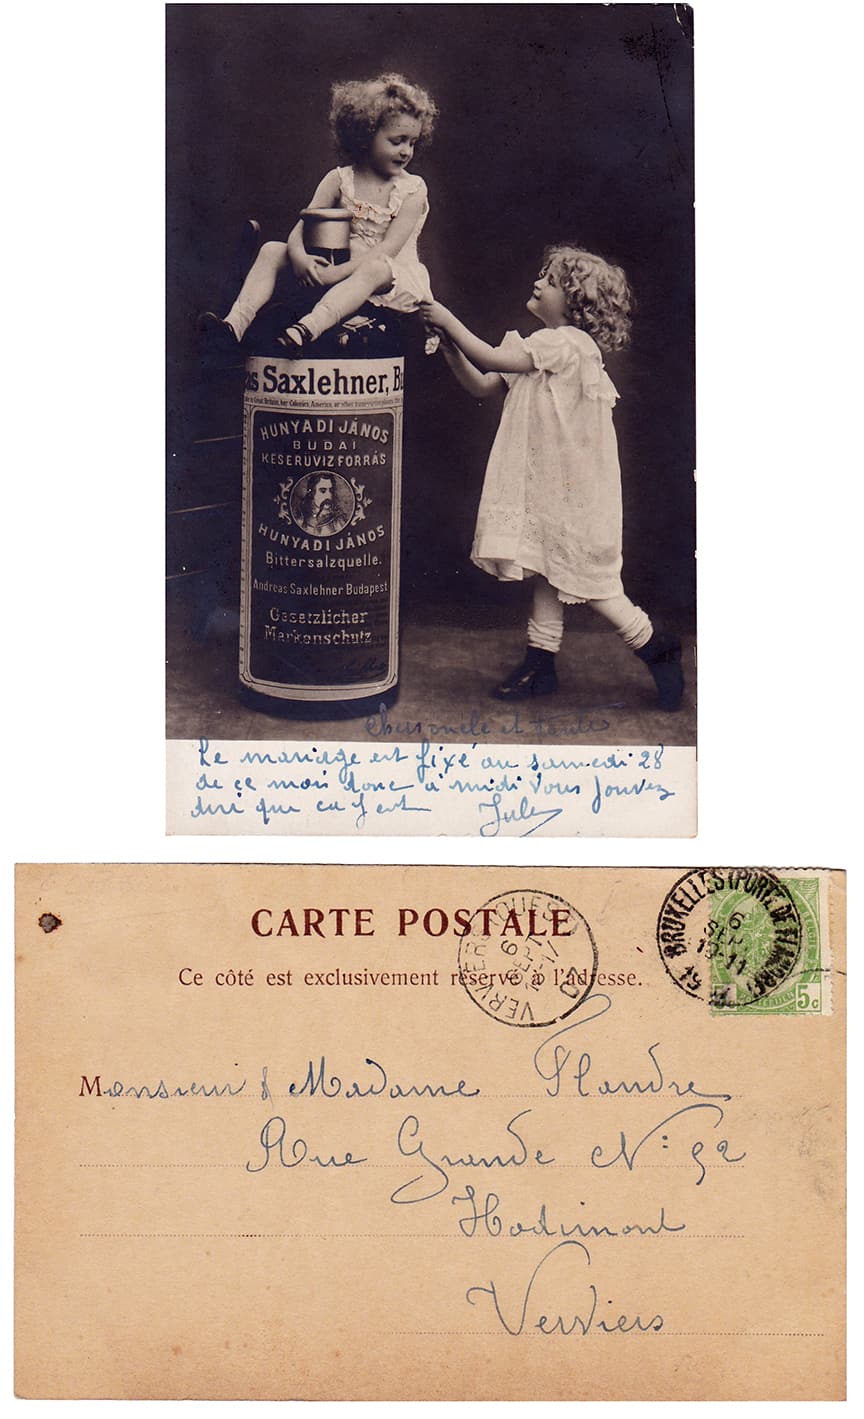 as Saxlehner, Bu
HUNYADI JÁNOS
BUDAI
KESERÜVIZ FORRÁS
HUNYADI JÁNOS
Bittersalzquelle.
Andreas Saxlehner Budapest
Gesetzlicher
Markenschutz
Cher oncle et Tante
Le mariage est fixé au samedi 28
de ce mois donc à midi Vous pouvez
dire que ca
Jules
CARTE POSTALE
Ce côté est exclusivement réservé à l'adresse.
VERVIERS (OUEST)
6
SEPT
07
BRUXELLES (PORTE DE FLANDRE)
6
SEPT
5c
Monsieur & Madame Flandre
Rue Grande N: 92
Hodimont
Verviers